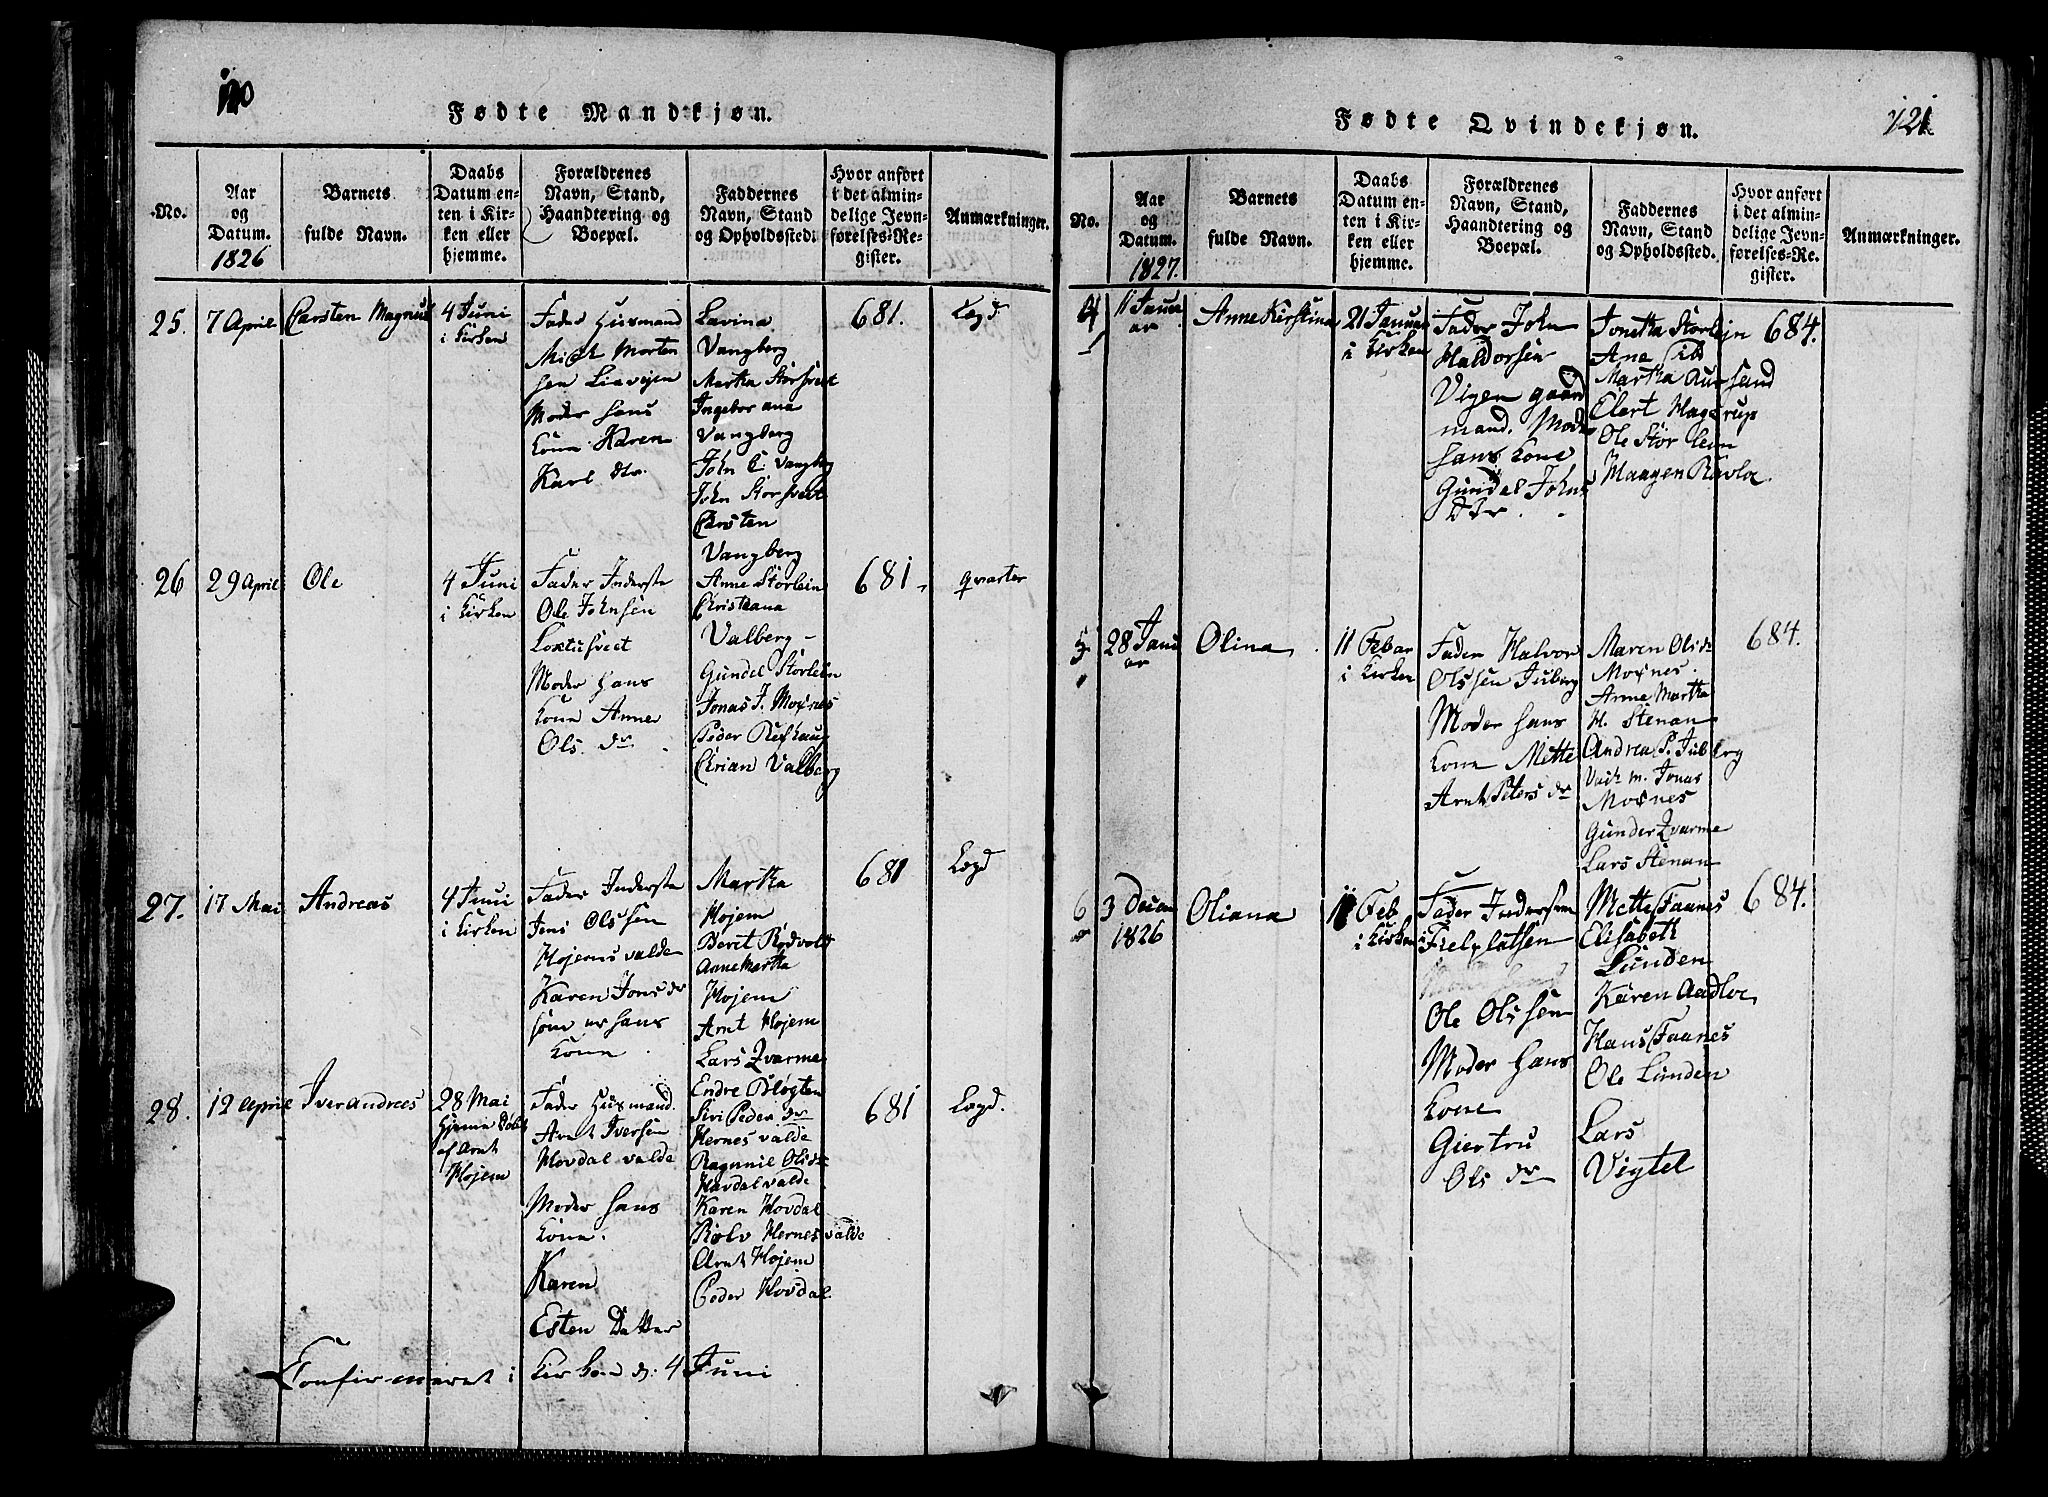 120
Fødte Mandkjøn.
No.
Aar
og
Datum.
1826
Barnets
fulde Navn.
Daabs
Datum en-
ten i Kir-
ken eller
hjemme.
Forældrenes
Navn, Stand,
Haandtering og
Boepæl.
Faddernes
Navn, Stand
og Opholdssted.
Hvor anført
i det almin-
delige Jevn-
førelses-Re-
gister.
Anmærkninger.
25.
7 April
Carsten Magnus
4 Juni
i Kirken
Fader Husmand
Mich Morten
sen Lievejen
Moder hans
Kone Karen
Karl dtr.
Lavina
Vangberg
Martha Storsvedt
Ingebor ana
Vangberg
John C. Vangberg
John Storsvedt
Carsten
Vangberg
681.
Legd
26
29 April
Ole
4 Juni
i Kirken
Fader Inderste
Ole Johnsen
Moder hans
Kone Anne
Ols. dr
Anne Störlein
Christiana
Valberg -
Gundel Störlein
Jonas J. Moxnes
Peder Refhaug
Crian Valberg
681.
qvarter
27.
17 Mai
Andreas
4 Juni
i Kirken
Fader Inderste
Jens Olssen
Højems valde
Karen Jons dr
som er hans
Kone
Martha
Højem
Beret Rødvold
Anne Martha
Højem
Arnt Højem
Lars Zvarme
681
Legd
28.
12 April
Iver Andreas
28 Mai
Hjemme Døbt
af Arnt
Højem
Fader Husmand.
Arnt Iversen
Hovdal valde
Moder hans
Kone.
Karen
Esten Datter
Endre Bløgten
Siri Peder dr
Hernes valde
Ragnnil Olidr
Havdal valde
Karen Hovdal
Rolv Hernes valde
Arnt Højem
Peder Hovdal
681
Legd.
Confirmeret i Kirken d. 4 Juni
121
Fødte Qvindekjøn.
No.
Aar
og
Datum.
1827.
Barnets
fulde Navn.
Daabs
Datum en-
ten i Kir-
ken eller
hjemme.
Forældrenes
Navn, Stand,
Haandtering og
Boepæl.
Faddernes
Navn, Stand
og Opholdssted.
Hvor anført
i det almin-
delige Jevn-
førelses-Re-
gister.
Anmærkninger.
4
11 Janu
ar
Anne Kirstina
21 Januar
i Kirken
Fader John
Haldorsen
Vigen gaard
mand. Moder
hans Kone
Gundel Johns
Dtr.
Jonetta Storlejn
Ane
Martha Aursand
Elert Hagerup
Ole Störlein
Maagen Ravlo.
684.
5
28 Janu
ar
Olina
11 Febar
i Kirken
Fader Halvor
Olssen Juberg
Moder hans
Kone Mette
Arnt Peters dr
Maren Olidr
Moxnes.
Anne Martha
H. Stenan
Andrea P. Juberg
m. Jonas
Moxnes
Gunder Zvarme
Lars Stenan
684.
6
3 Decem
1826
Oliana
11 Feb
i Kirken
Fader Indersten
Ole Olssen
Moder hans
Kone
Giertru
Ols dr
Mette Faanes
Elisabeth
Lunden
Karen Aadlo
Hans Faanes
Ole Lunden
Lars
Vigtel
684.